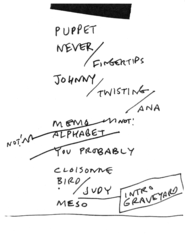 PUPPET
NEVER/
FINGERTIPS
JOHNNY/
TWISTING/
ANA
MOMO NOT!
NOT! ALPHABET
YOU PROBABLY
CLOISONNE
BIRD/
JUDY
MESO
INTRO
GRAVEYARD